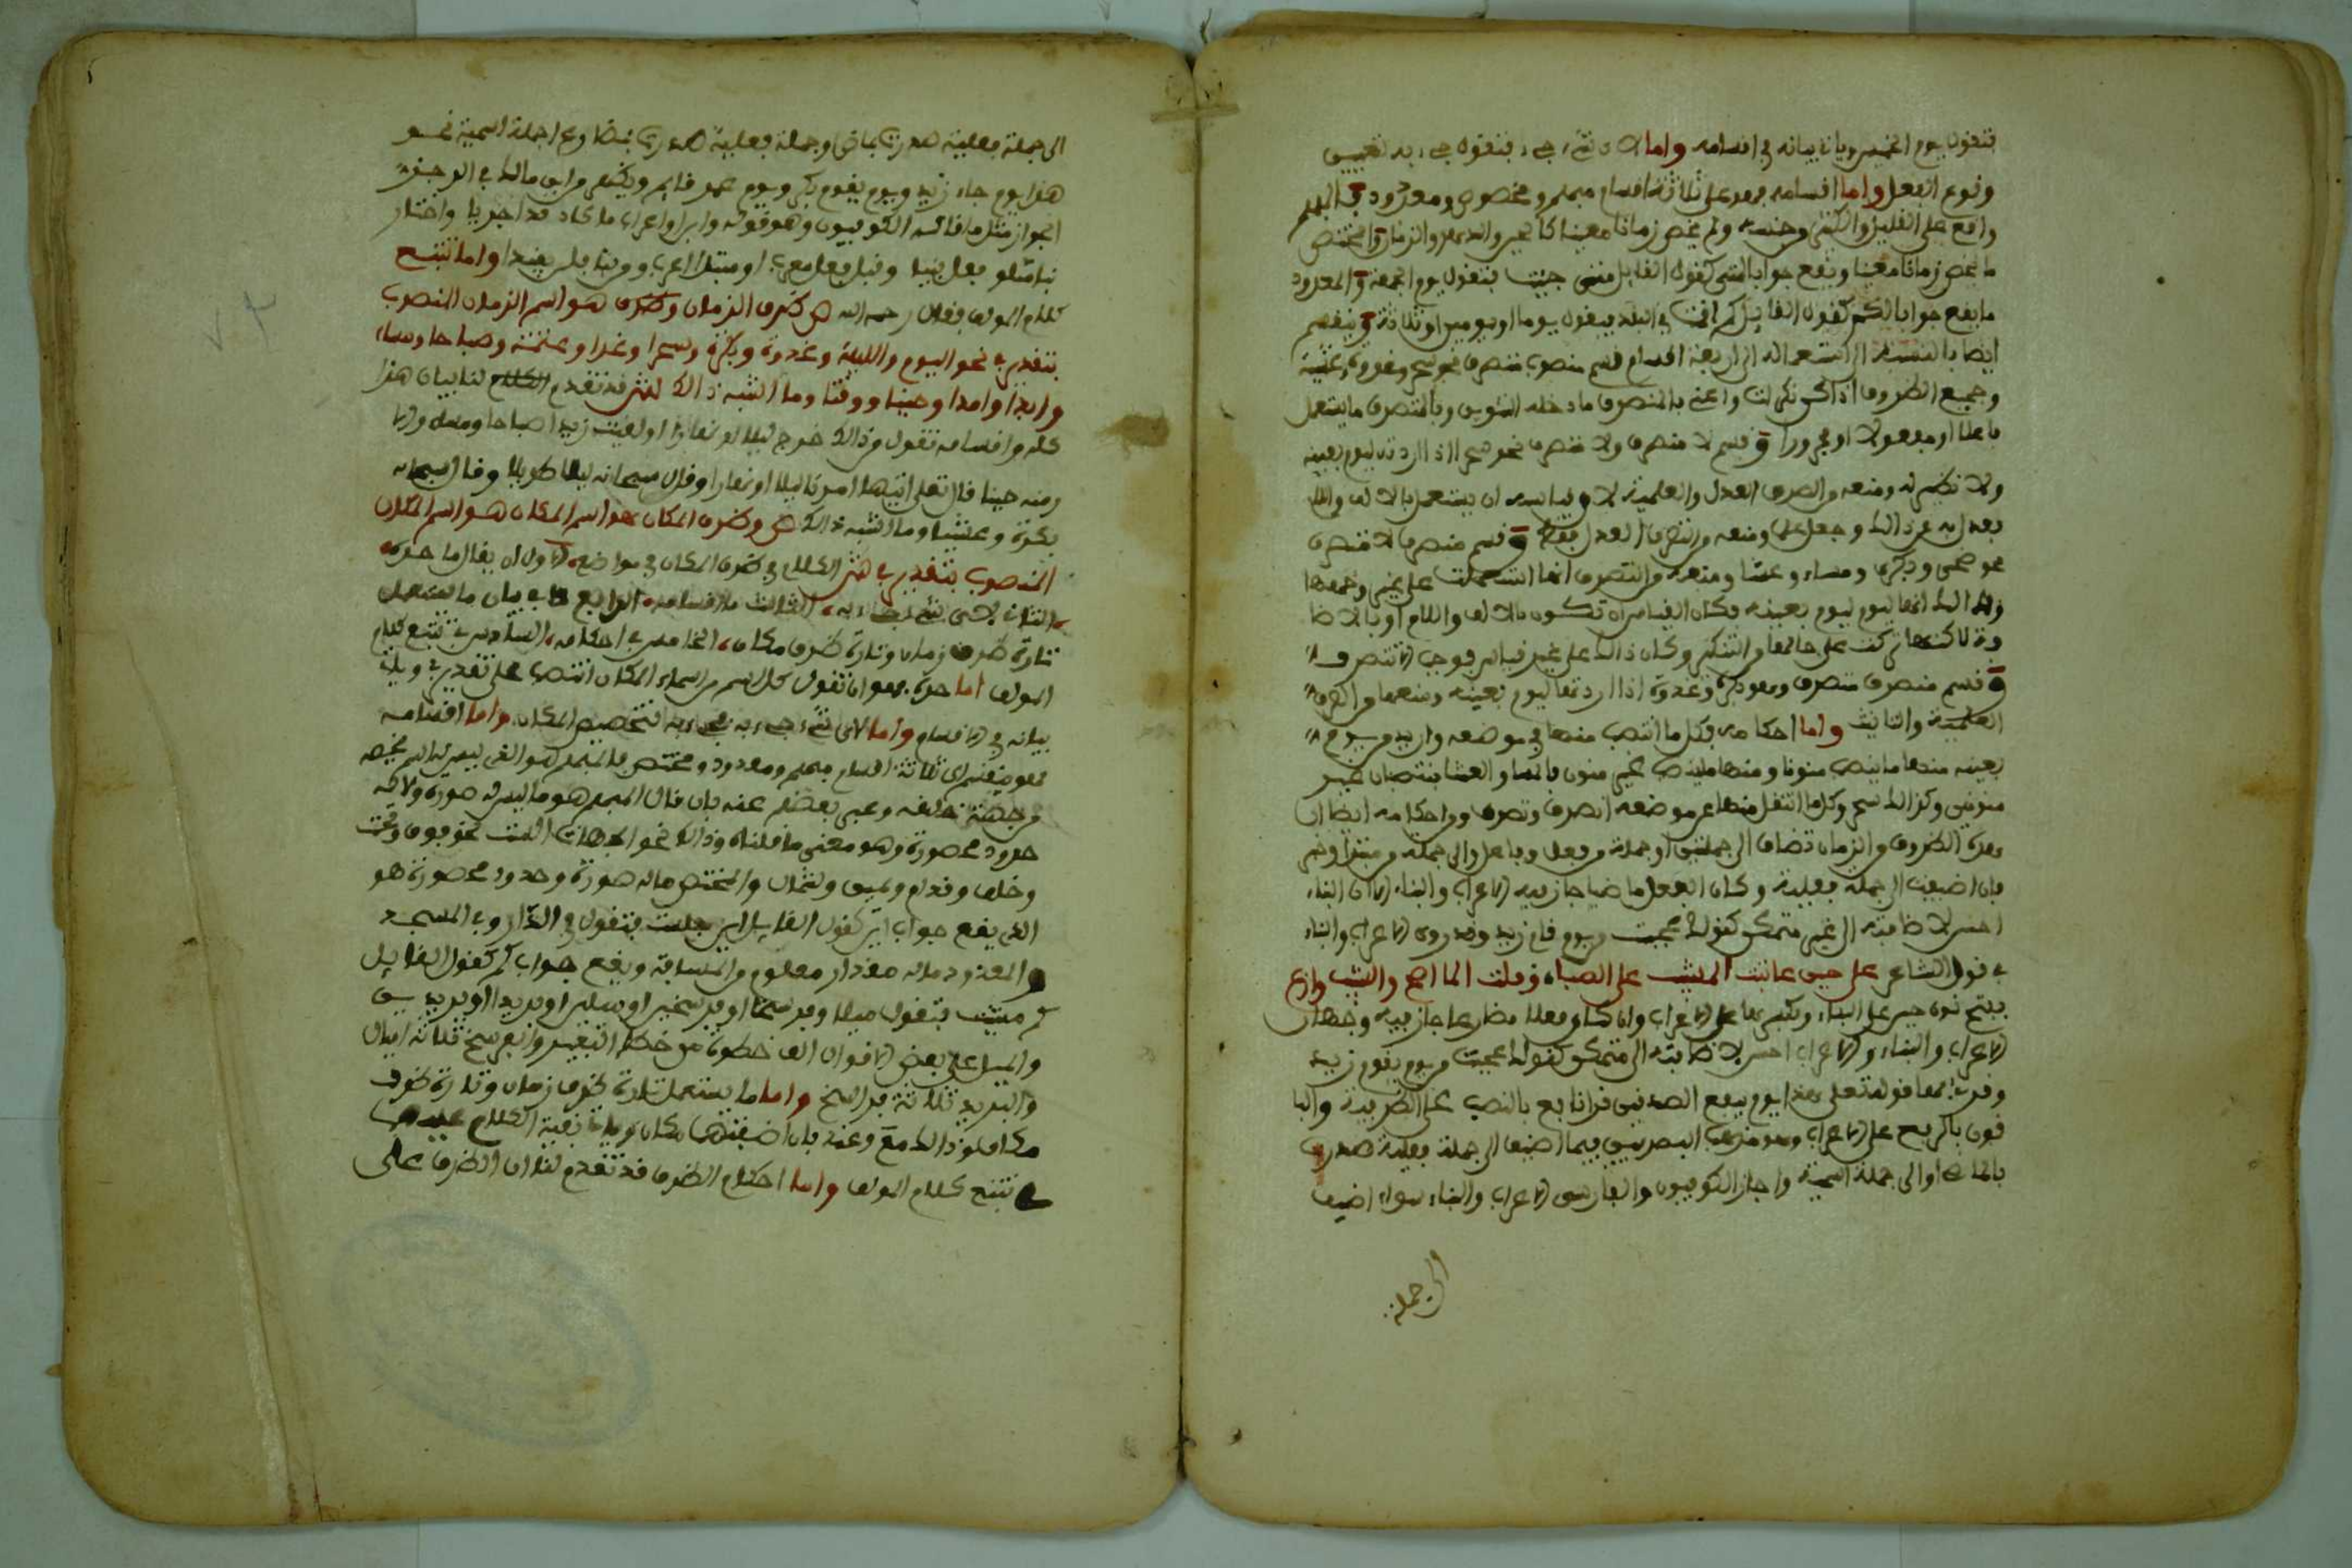 فتقول يوم الخميس وياتي بيانه في اقسامه واما لاي شيء جيء فتقول جيء به لتعيين
وقوع الفعل واما اقسامه فهو على ثلاثة اقسام مبهم ومخصوص ومعدود فالمبهم
واقع على القليل والكثير من جنسه ولم يخص زمانا معينا كالحين والدهر والزمان والمختص
ما يخص زمانا معينا ويقع جوابا لمتى كقول القايل متى جيت فتقول يوم الجمعة والمعدود
ما يقع جوابا لكم كقول القايل كم اقمت في البلد فيقول يوما او يومين او ثلاثة وينقسم
ايضا بالنسبة الى استعماله الى اربعة اقسام قسم منصرف متصرف نحو يوم وغدوة وعشية
وجميع الظروف اذا كن نكرات واعني بالمنصرف ما دخله التنوين وبالمتصرف ما يستعمل
فاعلا او مفعولا او مجرورا وقسم لا منصرف ولا متصرف نحو سحر اذا اردته ليوم بعينه
ولا نظير له ومنعه من الصرف العدل والعلمية لان قياسه ان يستعمل بالالف واللام
فعدل به عن ذلك وجعل علما ومنعه من التصرف العدل فقط وقسم منصرف لا متصرف
نحو ضحى وبكرا ومساء وعشا ومنعه من التصرف انها استعملت على غير وضعها
وذلك انها ليوم بعينه فكان القياس ان تكون بالالف واللام او بالاضا
فة لاكنها تركت على حالها من التنكير وكان ذالك على غير قياس فوجب الا تتصرف
وقسم متصرف لا منصرف وهو بكرة وغدوة اذا اردتها ليوم بعينه ومنعها من الصرف
العلمية والتانيث واما احكامه فكل ما انتصب منها في موضعه واريد من يوم
بعينه منها ما ينصب منونا ومنها ما ينصب غير منون فالمسا والعشا ينتصبان غير
منونين وكذالك سحر وكلما انتقل منها عن موضعه انصرف وتصرف ومن احكامه ايضا ان
هذه الظروف من الزمان تضاف الى جملتين او جملة من فعل وفاعل والى جملة من مبتدا وخبر
فان اضيفت الى جملة فعلية وكان الفعل ماضيا جاز فيه الاعراب والبناء الا ان البناء
احسن لاضافته الى غير متمكن كقولك عجبت من يوم قام زيد وقد روي الاعراب والبناء
في قول الشاعر على حين عاتبت المشيب على الصبا وقلت الما اصح والشيب وازع
بفتح نون حين على البناء وكسرها على الاعراب وان كان فعلا مضارعا جاز فيه وجهان
الاعراب والبناء والاعراب احسن لاضافته الى متمكن كقولك عجبت من يوم يقوم زيد
وقد قرئ بهما قوله تعلى هذا يوم ينفع الصدقين قرا نافع بالنصب على الظرفية والبا
قون بالرفع على الاعراب وهو مذهب البصريين فيما اضيف الى جملة فعلية صدرت
بالماضي او الى جملة اسمية واجاز الكوفيون والفارسي الاعراب والبناء سواء اضيف
الى جملة
الى جملة فعلية صدرت بماض او جملة فعلية صدرت بمضارع او جملة اسمية نحو
هذا يوم جاء زيد ويوم يقوم بكر ويوم عمر قايم ويكتفى من ابن مالك في الوجهين
الجواز مثل ما قاله الكوفييون وهو قوله وابن او اعرب ما كاذ قد اجريا واختار
بنا متلو فعل بنيا وقبل فعل معرب او مبتدا اعرب ومن بنا فلن يفندا واما تتبع
كلام المولف فقال رحمه الله ص ظرف الزمان وظرف هو اسم الزمان المنصوب
بتقدير في نحو اليوم والليلة وغدوة وبكرة وسحرا وغدا وعتمة وصباحا ومساء
وابدا وامدا وحينا ووقتا وما اشبه ذالك ش قد تقدم الكلام لنا بيان هذا
كله واقسامه تقول من ذالك خرج ليلا او نهارا او لقيت زيدا صباحا ومساء والا
ومنه حينا قال تعلى اتيها امرنا ليلا او نهارا وقال سبحانه ليلا طويلا وقال سبحانه
بكرة وعشيا وما اشبه ذالك ص وظرف المكان هو اسم المكان هو اسم المكان
المنصوب بتقدير في ش الكلام في ظرف المكان في مواضع الاول ان يقال ما حده
الثاني لاي شيء جيء به الثالث ما اقسامه الرابع في بيان ما يستعمل
تارة ظرف زمان وتارة ظرف مكان الخامس في احكامه السادس في تتبع كلام
المولف اما حده فهو ان تقول كل اسم من اسماء المكان انتصب على تقدير في وياتي
بيانه في الاقسام واما لاي شيء جيء به فجيء به لتخصيص المكان واما اقسامه
فهو ينقسم الى ثلاثة اقسام مبهم ومعدود ومختص فالمبهم هو الذي ليس له اسم يخصه
من جهة خلقه وعبر بعضهم عنه بان قال المبهم هو ما ليس له صورة ولا له
حدود محصورة وهو معنى ما قلناه وذالك نحو الجهات الست نحو فوق وتحت
وخلف وقدام ويمين وشمال والمختص ما له صورة وحدود محصورة هو
الذي يقع جواب اين كقول القايل اين جلست فتقول في الدار وفي المسجد
والمعدود ما له مقدار معلوم من المسافة ويقع جواب كم كقول القايل
كم مشيت فتقول ميلا وفرسخا او فرسخين او ميلين او بريدا او بريدين
والميل على بعض الاقوال الف خطوة من خطا البعير والفرسخ ثلاثة اميال
والبريد ثلاثة فراسخ واما ما يستعمل تارة ظرف زمان وتارة ظرف
مكان فمن ذالك مع وعند فان اضفتها مكان وياتي بقية الكلام عليهما
في تتبع كلام المولف واما احكام الظرف قد تقدم لنا ان الظرف على